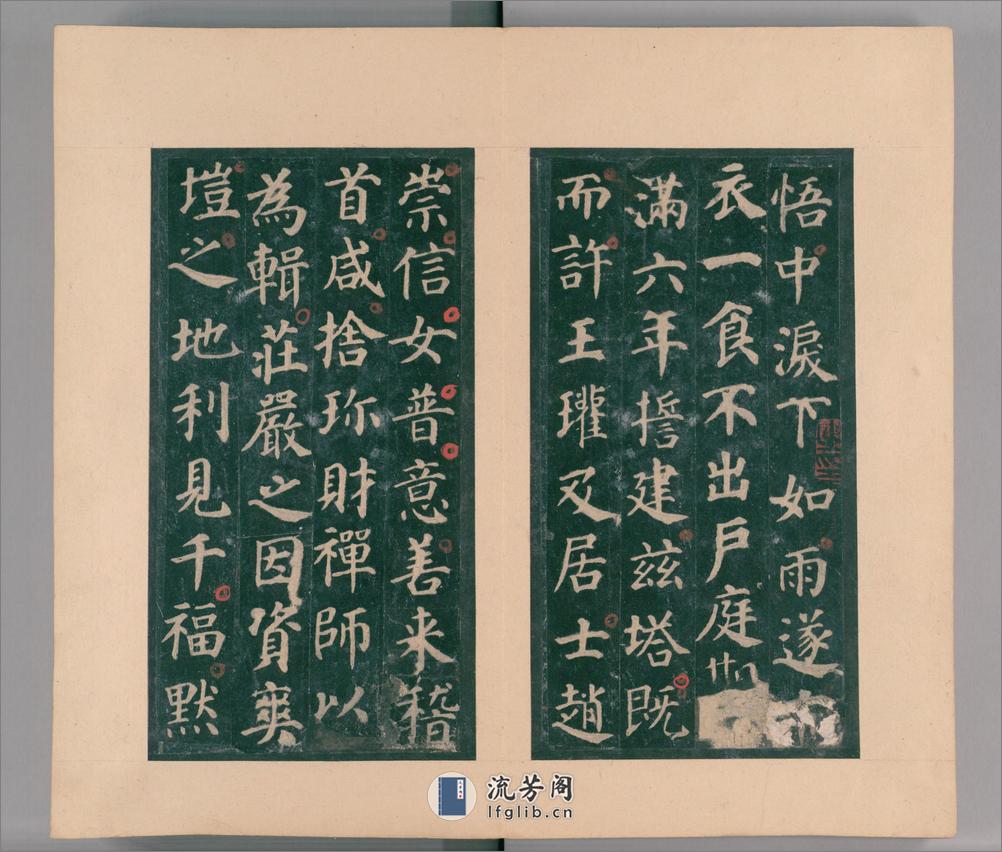 悟中淚下如雨遂
衣一食不出戶庭
滿六年誓建茲塔既
而許王瓘及居士趙
崇信女普意善来稽
首咸捨珎財禪師以
為輯莊嚴之因資爽
塏之地利見千福默
流芳阁
lfglib.cn